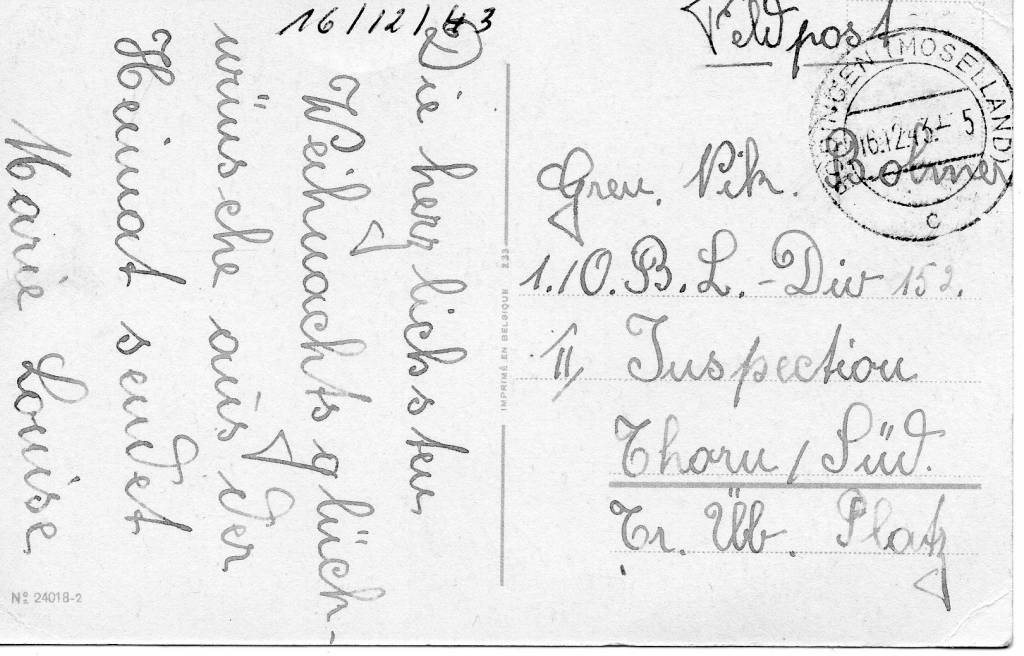 16/12/43
Die herzlichsten
Weihnachtsglück-
wünsche aus der
Heimat sendet
Marie Louise
Nº 24018-2
IMPRIMÉ EN BELGIQUE 233
Feldpost
(MOSELLAND)
16.12.43.-5
c
Gren. Vik.
1./O.B.L.-Div 152.
II, Inspection
Thorn / Süd.
Tr. Üb. Platz